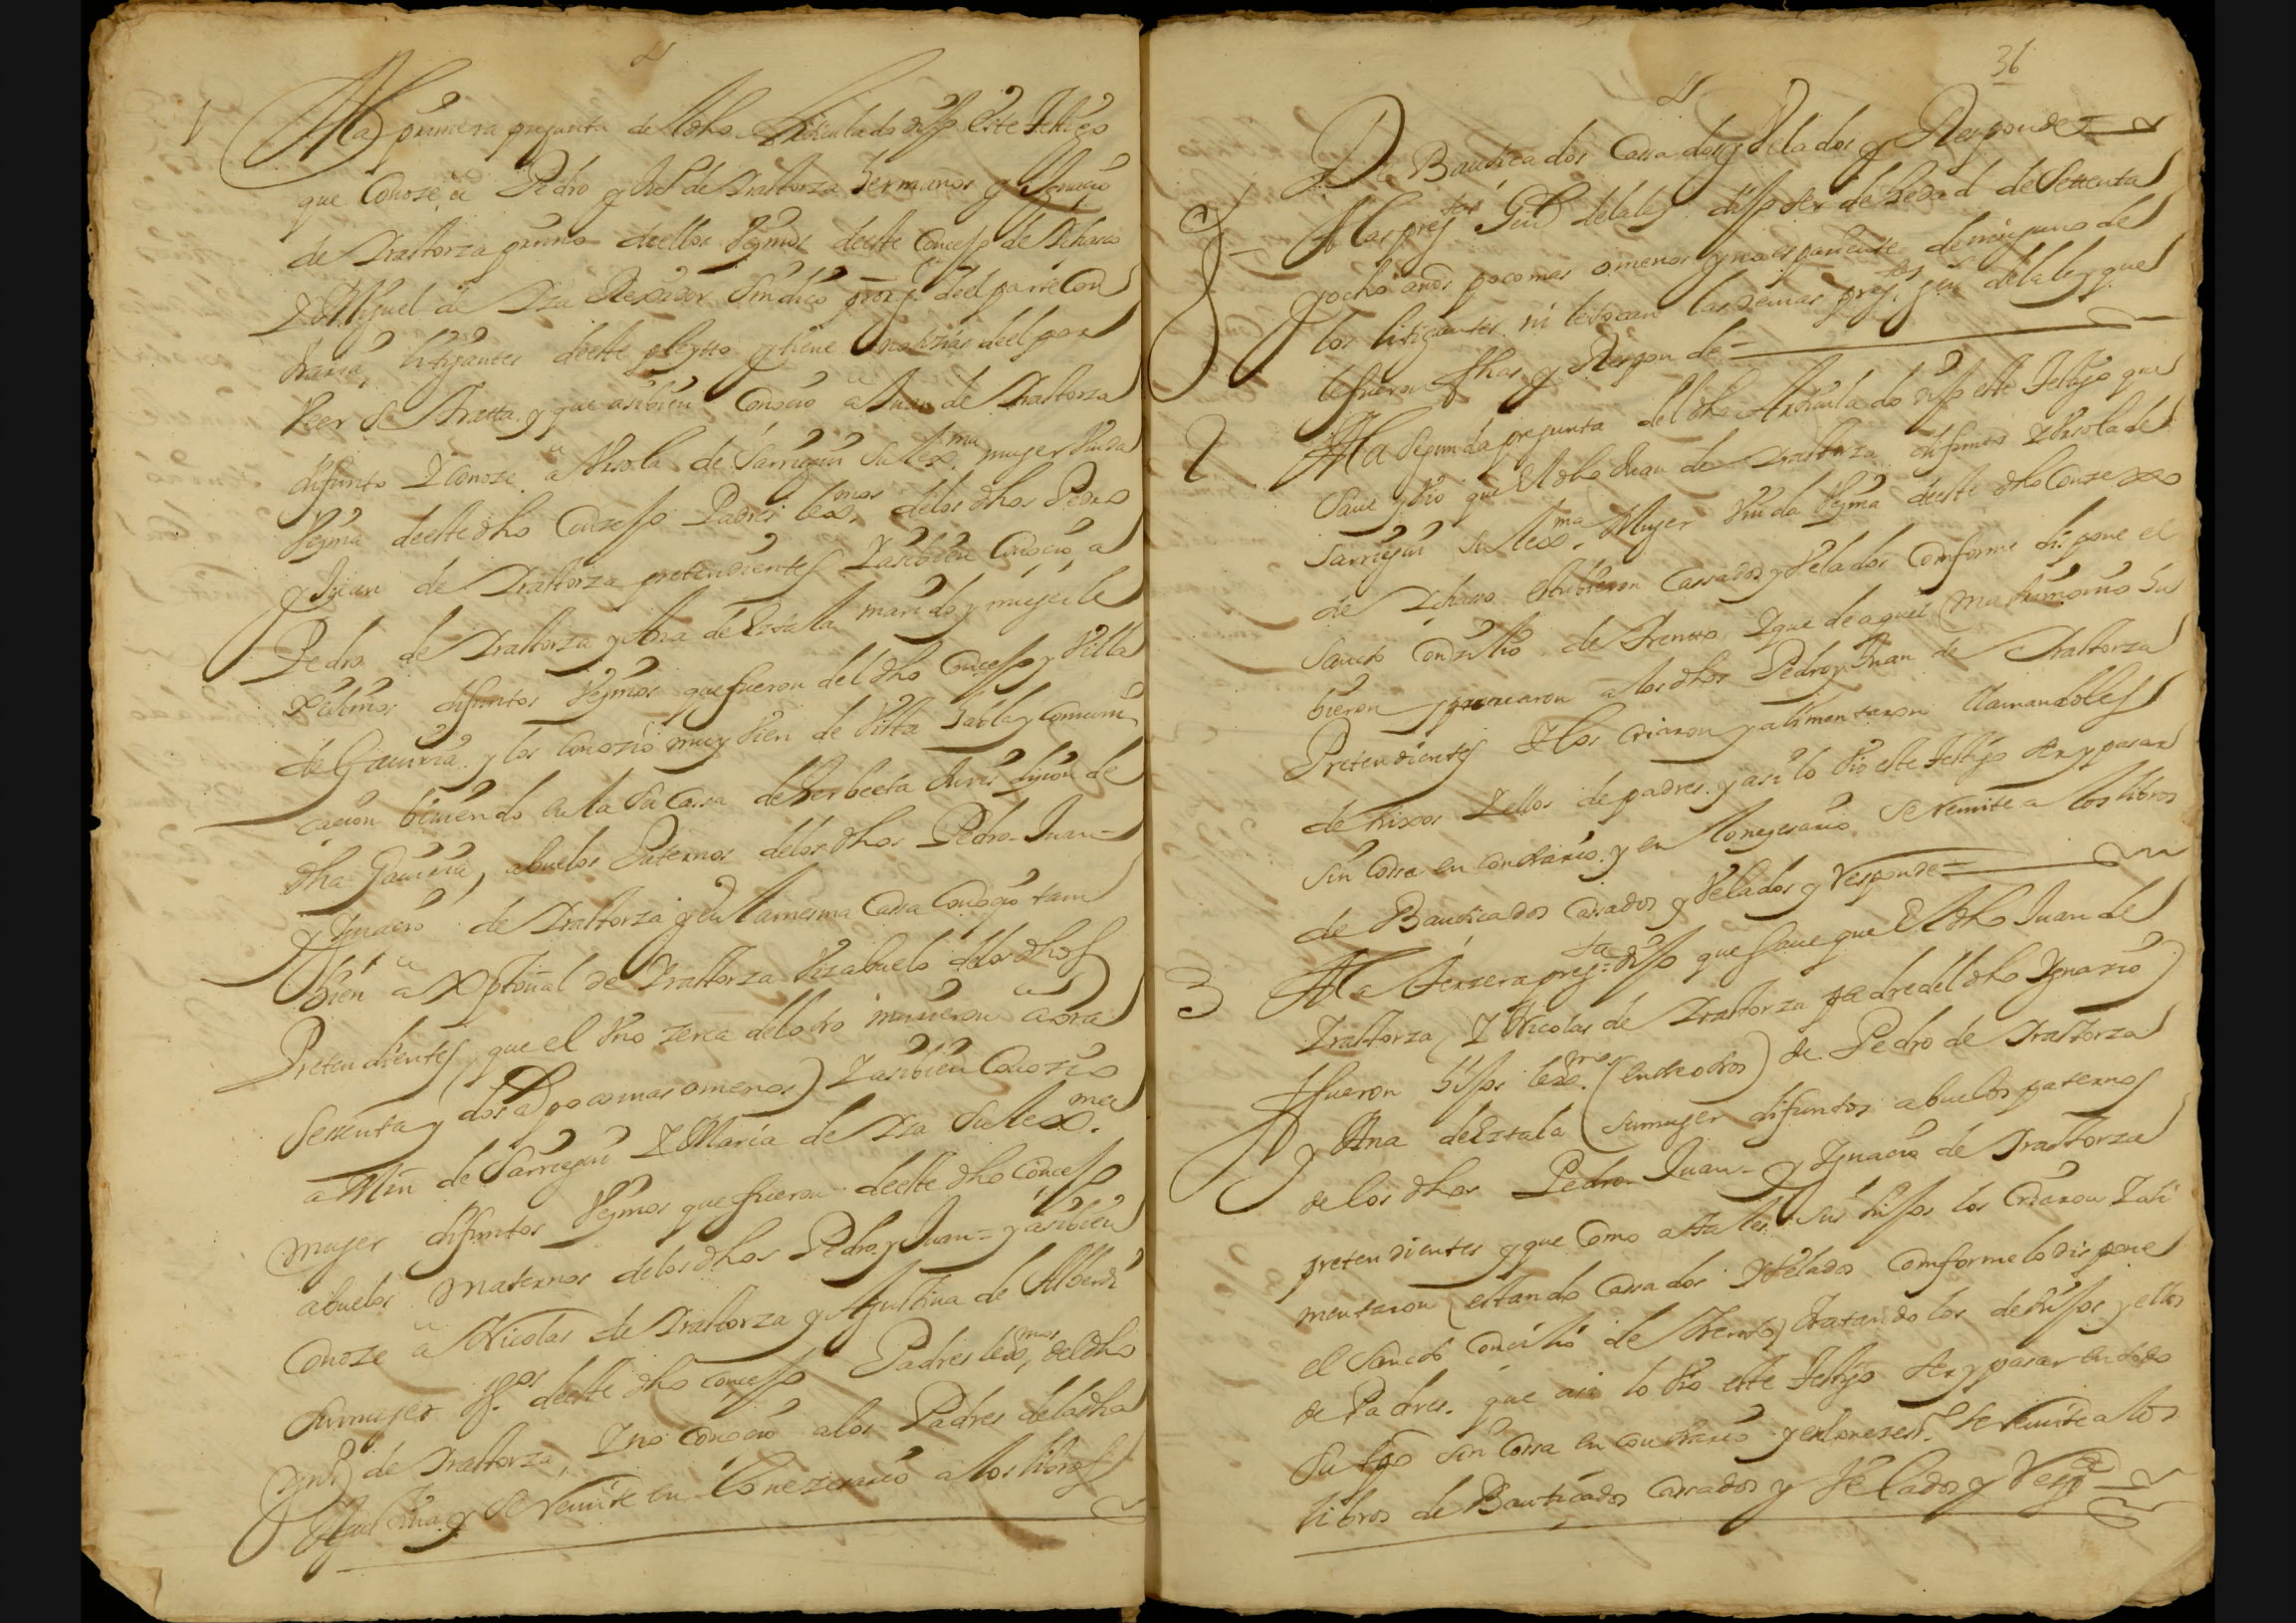 1 A la primera pregunta del dho Articulado dijo este testigo
que Conoze a Pedro y Juº de Irastorza hermanos y Ygnacio
de Irastorza primo dellos vezinos deeste Concejo de Ichaso
Y Miguel de Iza Rexidor Sindico
traria litigantes deeste pleytto y tiene noticias deel por
veer se tratta. y que asibien Conocio a Juan de Irastorza
difunto Y Conoze a Vrsola de Sarriegui su lexma muger viuda
vezina deeste dho Conzejo Padres lexmos de los dhos Pedro
y Juan de Irastorza pretendientes Y asibien Conocio a
Pedro de Irastorza y Ana de Eztala marido y muger le
xitimos difuntos vezinos que fueron del dho Concejo y Villa
de Gauiria y los Conozio muy vien de Vista habla y Comuni
cacion biuiendo en la su Cassa de juris dicion de
dha Gauiria, abuelos Paternos de los dhos Pedro- Juan=
y Ygnacio de Irastorza y en la mesma Cassa Conocio tam
bien a Xptoual de Irastorza Vizabuelo de los dhos
Pretendientes, que el vno zerca del otro murieron aora
sesenta y dos a) poco mas o menos) Y asibien Conozio
a Min de Sarriegui Y Maria de Iza su lexma
muger difuntos vezinos que fueron deeste dho Concejo
abuelos maternos de los dhos Pedro y Juan= y asibien
Conoze a Nicolas de Irastorza y Agustina de Alberdi
su muger vzos deeste dho Concejo Padres lexmos del dho
Ygnº) de Irastorza, Y no Conocio a los Padres de la dha
Agustina. y se remite en lo nezesario a los libros
36
De Bautizados Cassados y Velados y Responde=
A las pregtas Gen de la ley dijo ser de hedad de Settenta
y ocho años poco mas o menos y no es pariente de ninguno de
los litigantes ni le tocan las demas pregtas gen de la ley que
le fueron fhas y Respon de=
2 A la segunda pregunta del dho Articulado dijo este testigo que
Saue y vio que el dho Juan de Irastorza difunto Y Vrsola de
Sarriegui su lexma Muger viuda vezina deeste dho Conzexo
de Ichaso estubieron Cassados y Velados Comforme dispone el
Santo Conzilio de Trento Y que de aquel matrimonio hu
bieron y procrearon a los dhos Pedro y Juan de Irastorza
Pretendientes Y los criaron y alimentaron llamandoles
de hixos Y ellos de padres. y asi lo vio este testigo ser y pasar
sin Cossa en contrario. y en lo nezesario se remite a los libros
de Bautizados Cassados y Velados y responde=
3 A la terzera pregta dijo que saue que el dho Juan de
Irastorza, Y Nicolas de Irastorza padre del dho Ygnazio
fueron hijos lexmos (entre otros) de Pedro de Irastorza
y Ana de Eztala (su muger difuntos abuelos paternos
de los dhos Pedro- Juan- y Ygnacio de Irastorza
pretendientes y que Como a tales sus hijos los Criaron Y ali
mentaron (estando Cassados Y Velados Comforme lo dispone
el Sancto Concilio de Trento) tratandolos de hijos y ellos
de Padres. que asi lo vio este testigo ser y pasar en todo
su tpo sin Cossa en contrario y en lo nezesº se remite a los
libros de Bautizados Cassados y Velados y Resp